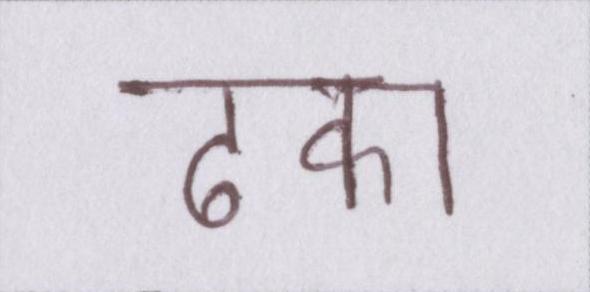 ढका